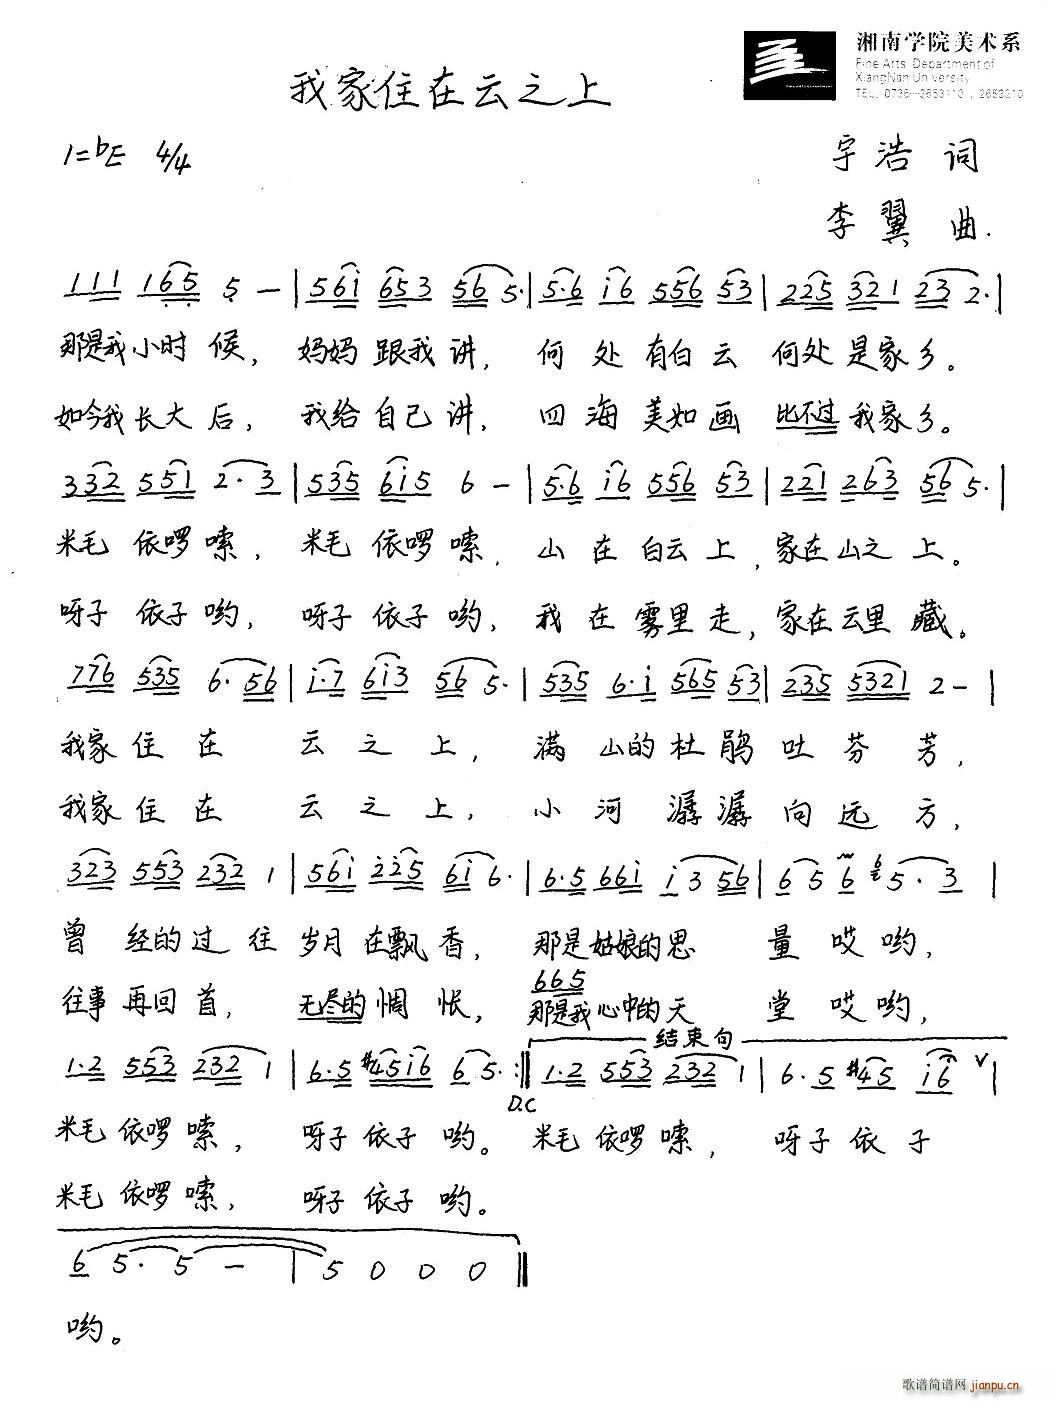 湘南学院美术系
Fine Arts Department of
XiangNan University
TEL: 0735-2653110, 2653210
我家住在云之上
1=bE 4/4
宇浩 词
李翼 曲.
111 165 5 — | 56i 653 56 5· | 5·6 i6 556 53 | 225 321 23 2· |
那是我小时候, 妈妈跟我讲, 何处有白云 何处是家乡。
如今我长大后, 我给自己讲, 四海美如画 比不过我家乡。
332 551 2·3 | 535 6i5 6 — | 5·6 i6 556 53 | 221 263 56 5· |
米毛依啰嗦, 米毛依啰嗦, 山在白云上, 家在山之上。
呀子依子哟, 呀子依子哟, 我在雾里走, 家在云里藏。
776 535 6·56 | i·7 6i3 56 5· | 535 6·i 565 53 | 235 5321 2 — |
我家住在 云之上, 满山的杜鹃吐芬芳,
我家住在 云之上, 小河潺潺向远方,
323 553 232 1 | 56i 225 6i 6· | 6·5 66i i3 56 | 6 5 6 b 5·3 |
曾经的过往 岁月在飘香, 那是姑娘的思 量哎哟,
665
往事再回首, 无尽的惆怅, 那是我心中的天 堂哎哟,
结束句
1·2 553 232 1 | 6·5 #45i6 6 5· :‖ 1·2 553 232 1 | 6·5 #45 i6 V |
D.C
米毛依啰嗦, 呀子依子哟。 米毛依啰嗦, 呀子依子
米毛依啰嗦, 呀子依子哟。
6 5· 5 — | 5 0 0 0 ‖
哟。
歌谱简谱网 jianpu.cn